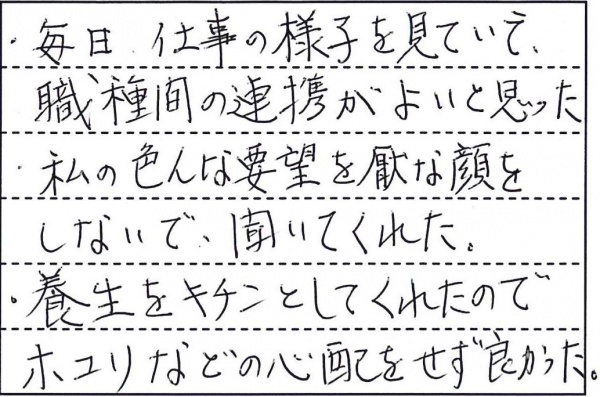 ・毎日、仕事の様子を見ていて、
職種間の連携がよいと思った
・私の色んな要望を厭な顔を
しないで、聞いてくれた。
・養生をキチンとしてくれたので
ホコリなどの心配をせず良かった。